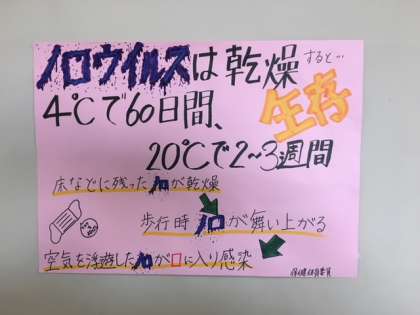 ノロウイルスは乾燥すると…
4℃で60日間、
生存
20℃で2~3週間
床などに残ったノロが乾燥
歩行時ノロが舞い上がる
空気を浮遊したノロが口に入り感染
保健体育委員